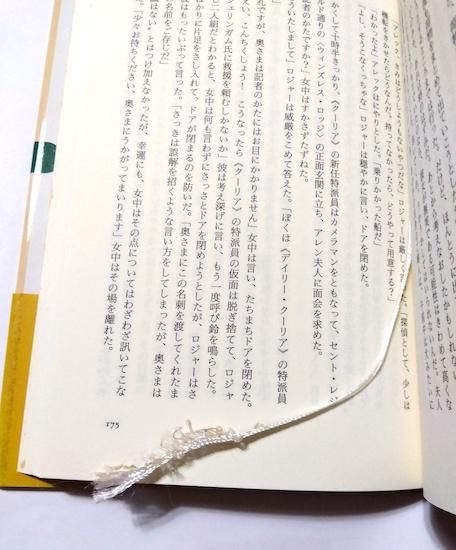 かもしれない
きわめて高くな
れないんだ。夫人
みたいに
「アレック、きみはどうしようもないやつだな」ロジャーは厳しく た。「探偵として、少しは
をきかせたらどうなんだ。持ってなかったら、どうやって用意する?」
「わかったよ」アレックはにやりとした。「乗りかかった船だ」
「よし、そうこなくっちゃな」ロジャーは穏やかに言い、ドアを閉めた。
かくして十時半きっかり、〈クーリア〉の新任特派員はカメラマンをともなって、セント・レジ
ルド通りの〈ウィンズレス・ロッジ〉の正面玄関に立ち、アレン夫人に面会を求めた。
記者のかたですか?」女中はすかさずたずねた。
ういたしまして」ロジャーは威厳をこめて答えた。「ぼくは《デイリー・クーリア》の特派員
礼ですが、奥さまは記者のかたにはお目にかかりません」女中は言い、たちまちドアを閉めた。
えい、こんちくしょう! こうなったら《クーリア》の特派員の仮面は脱ぎ捨てて、ロジャ
シェリンガム氏に救援を頼むしかないか」彼は考え深げに言い、もう一度呼び鈴を鳴らした。
二人組だとわかると、女中は何も言わずにさっさとドアを閉めようとしたが、ロジャーはさ
ばかりに片足をさし入れて、ドアが閉まるのを防いだ。「奥さまにこの名刺を渡してくれたま
はもったいぶって言った。「さっきは誤解を招くような言い方をしてしまったが、奥さまは
名前をご存じだ」
はない〟とはつけ加えなかったが、幸運にも、女中はその点についてはわざわざ訊いてこな
。「少々お待ちください、奥さまにうかがってまいります」女中はその場を離れた。
175